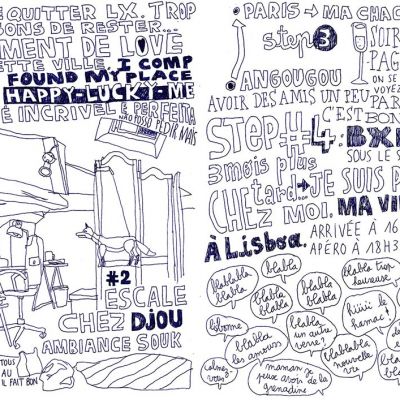 QUITTER LX. TROP
BONS DE RESTER...
MENT DE LOVE
ETTE VILLE. I COMP
FOUND MY PLACE
HAPPY-LUCKY-ME
É INCRIVEL É PERFEITA
NÃO POSSO PEDIR MAIS
#2
ESCALE
CHEZ DJOU
AMBIANCE SOUK
TOUT
AU
IL FAIT BON
PARIS → MA CHAC
step 3
SOIR
PAG
ON SE
VOYEZ
ANGOUGOU
AVOIR DES AMIS UN PEU PAR
C'EST BON
STEP #4: BX
SOUS LE S
3 mois plus
tard... JE SUIS P
CHEZ MOI. MA VI
À Lisboa.
ARRIVÉE À 16
APÉRO À 18H3
blablabla
blabla
blabla
blabla
blabla
blabla
blabla trop
heureuse
blabla
un autre
verre?
hiiiii le
hamac!
blabla
les amours
blablabla
nouvelle
vie
calmez-
vous!
maman je
peux avoir de la
grenadine